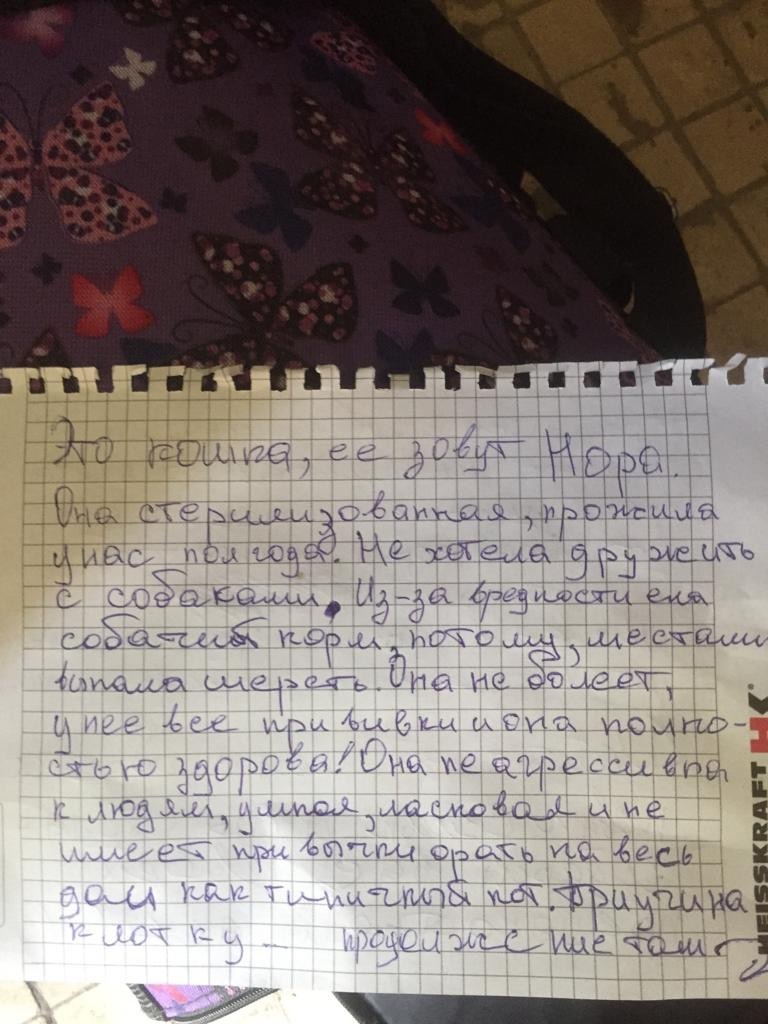 Это кошка, ее зовут Нора.
Она стерилизованная, прожила
у нас пол года. Не хотела дружить
с собаками. Из-за вредности ела
собачий корм, потому, местами
выпала шерсть. Она не болеет,
у нее все прививки и она полно-
стью здорова! Она не агрессивна
к людям, умная, ласковая и не
имеет привычки орать на весь
дом как типичный кот. Приучина
к лотку – продолжение там
HEISSKRAFT HK